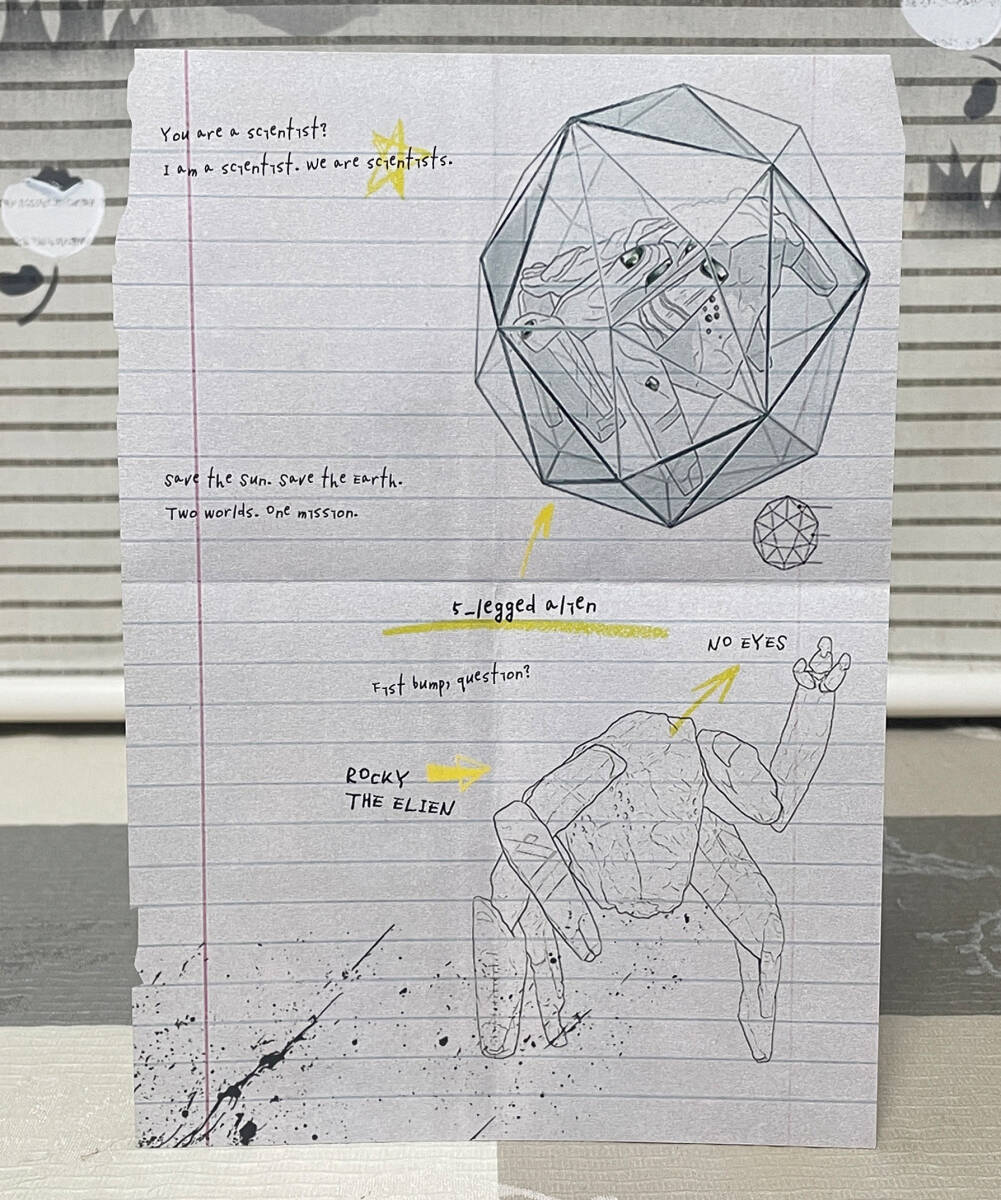 You are a scientist?
I am a scientist. We are scientists.
Save the Sun. Save the Earth.
Two worlds. One mission.
5_legged alien
NO EYES
Fist bump, question?
ROCKY
THE ELIEN